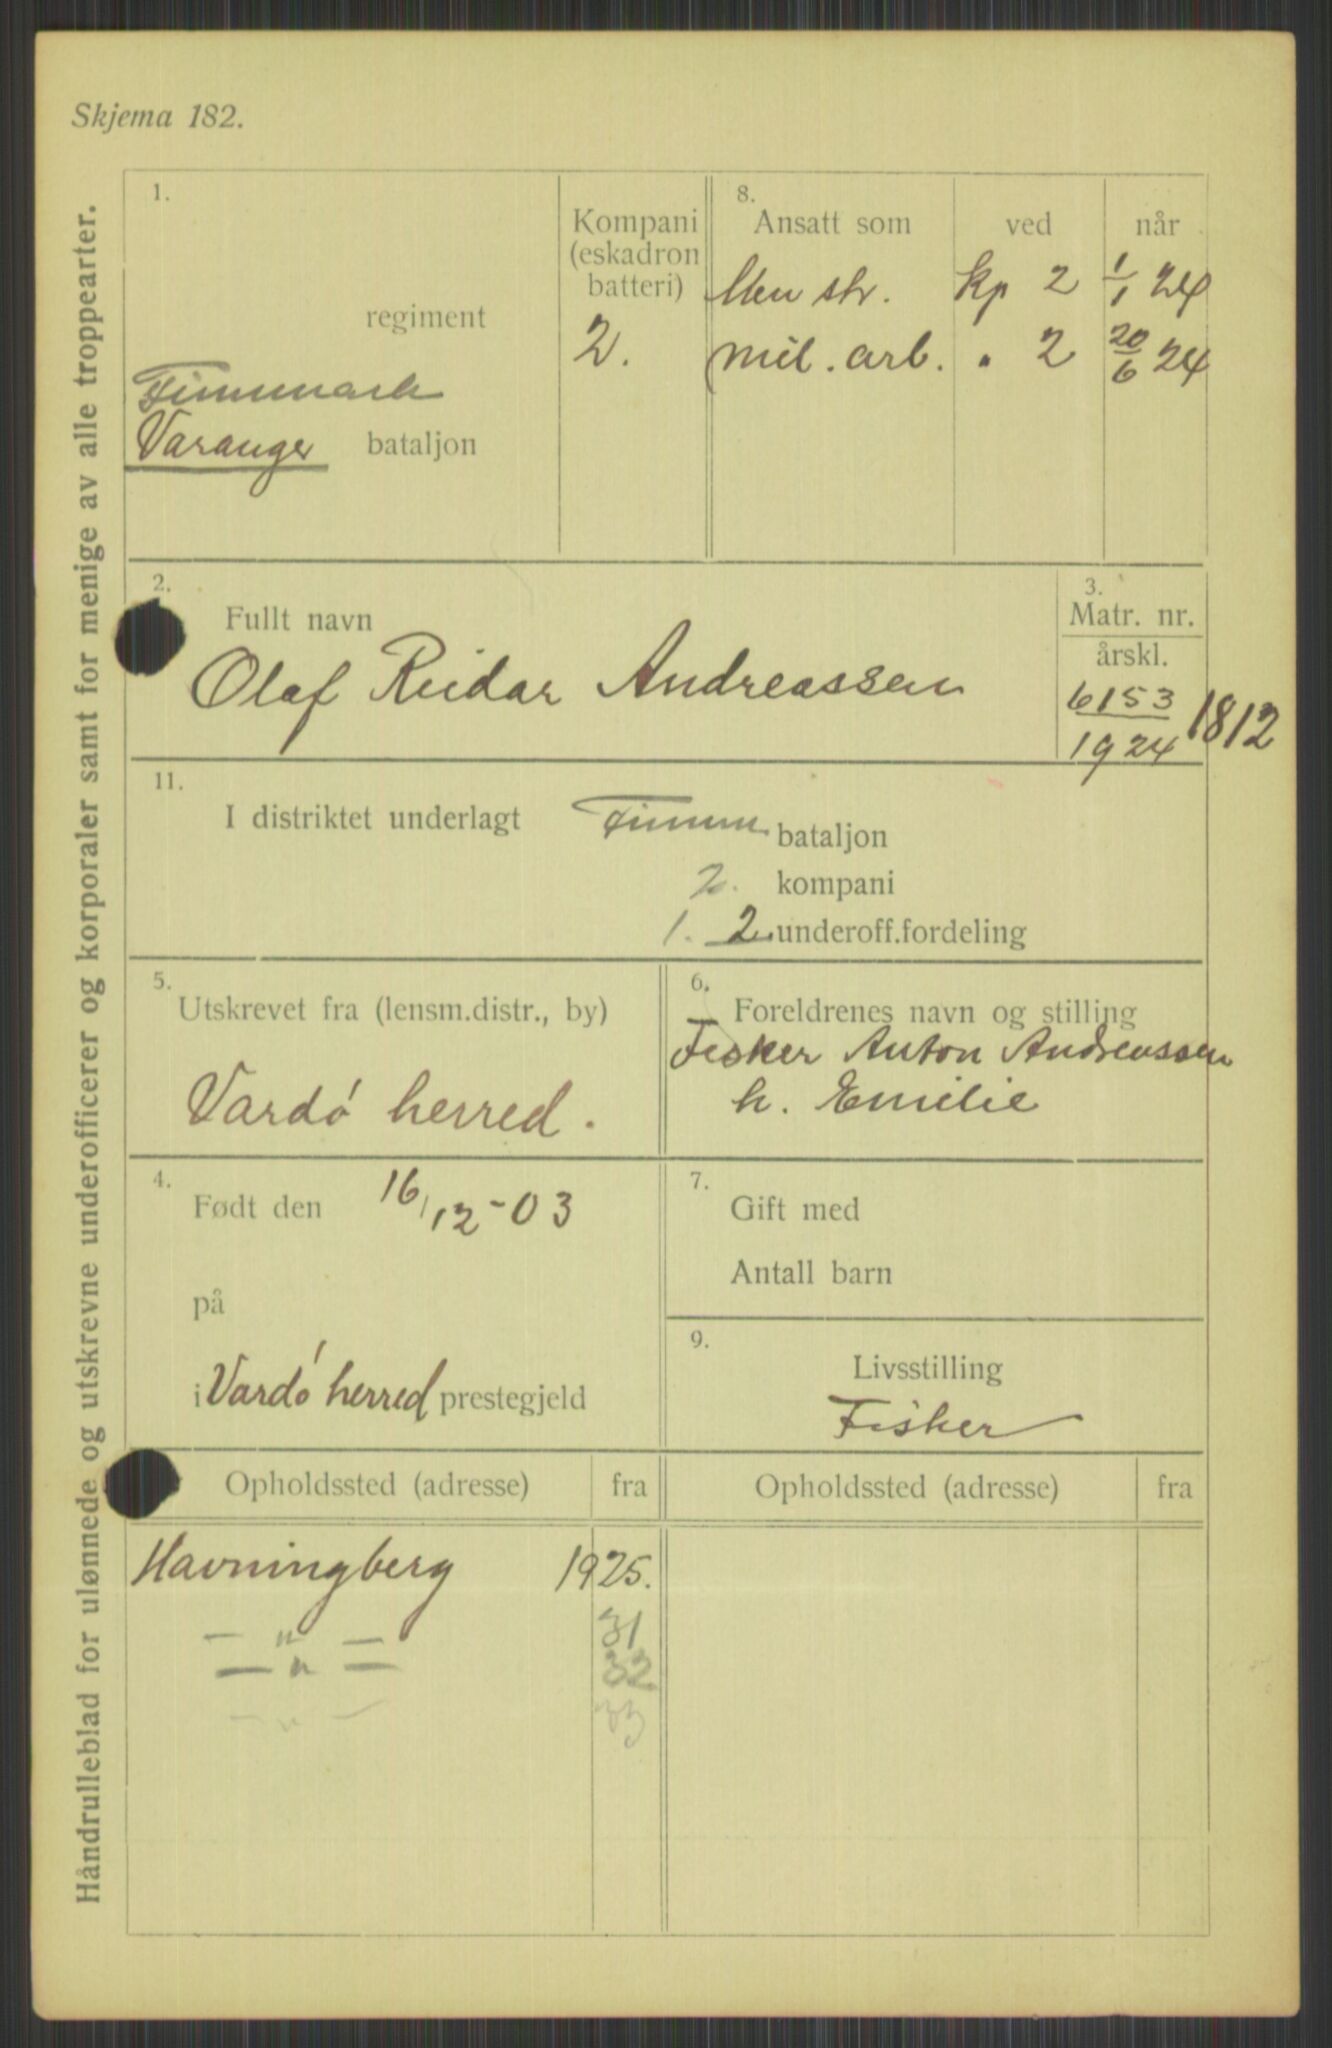 Skjema 182.
Håndrulleblad for ulønnede og utskrevne underofficerer og korporaler samt for menige av alle troppearter.
1.
regiment
Finnmark
Varanger bataljon
Kompani
(eskadron
batteri)
2.
8.
Ansatt som ved når
Men str. kp 2 1/1 24
mil. arb. " 2 20/6 24
2.
Fullt navn
Olaf Reidar Andreassen
3.
Matr. nr.
årskl.
6153
1924
1812
11.
I distriktet underlagt Finnm. bataljon
2. kompani
1. 2. underoff.fordeling
5.
Utskrevet fra (lensm.distr., by)
Vardø herred.
6.
Foreldrenes navn og stilling
Fisker Anton Andreassen
h. Emilie
4.
Født den 16/12-03
på
i Vardø herred prestegjeld
7.
Gift med
Antall barn
9.
Livsstilling
Fisker
Opholdssted (adresse) fra
Opholdssted (adresse) fra
Havningberg 1925.
— " — 31
— " — 32
— " — 33